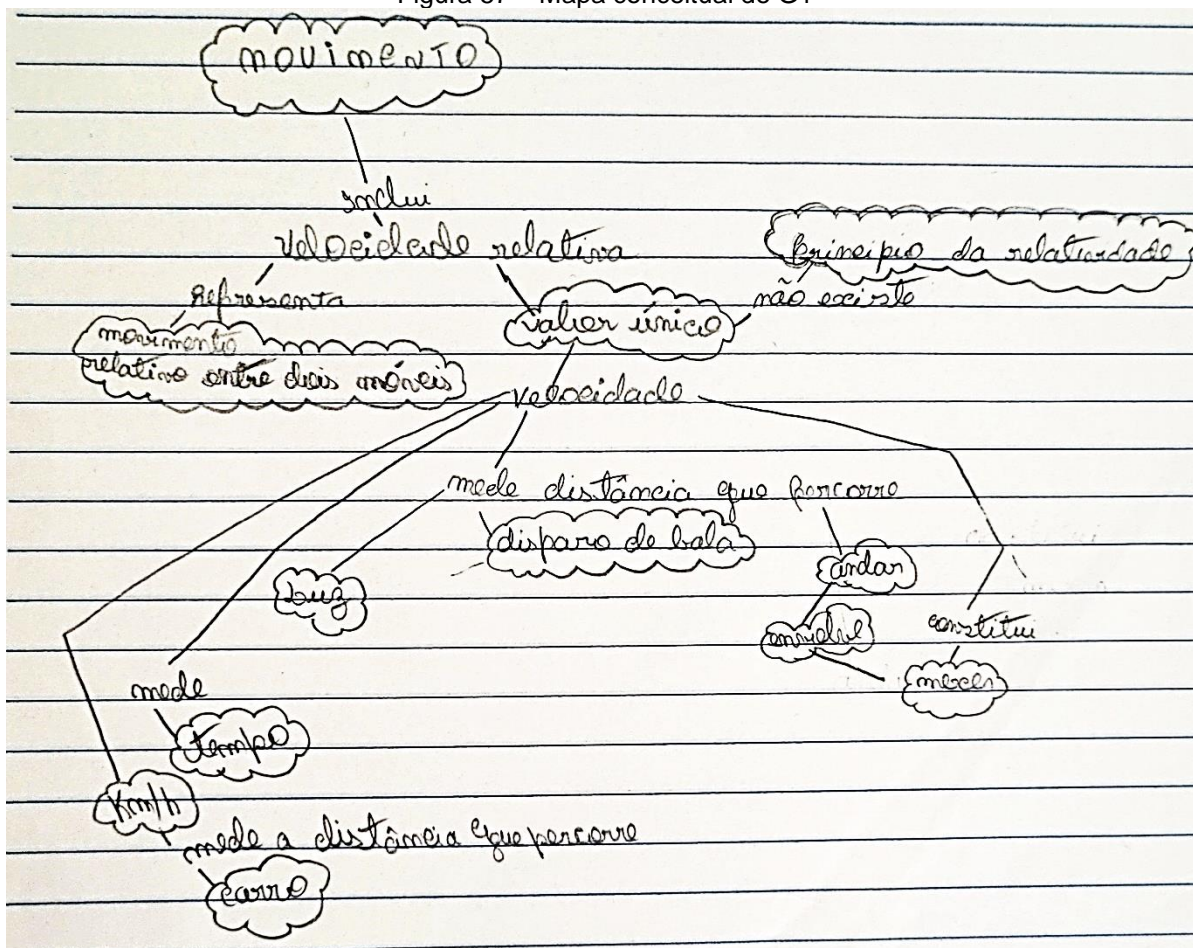 Mapa conceitual de
movimento
inclui
velocidade relativa
Princípio da relatividade
Representa
não existe
valor único
movimento
relativo entre dois móveis
velocidade
mede distância que percorre
disparo de bala
andar
Luz
envolve
constitui
mexer
mede
tempo
Km/h
mede a distância que percorre
carro